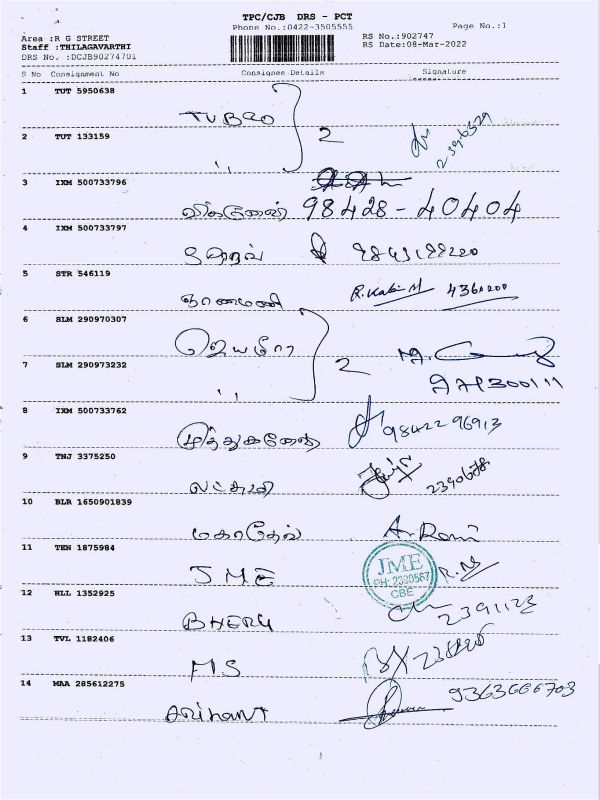 TPC/CJB DRS - PCT
Phone No.:0422-3505555 Page No.:1
Area :R G STREET RS No.:902747
Staff :THILAGAVARTHI RS Date:08-Mar-2022
DRS No. :DCJB90274701
S No Consignment No Consignee Details Signature
1 TUT 5950638
TUBRO
2 TUT 133159 2
〃
3 IXM 500733796
98428-40404
4 IXM 500733797
5 STR 546119
ஞானமணி 4360200
6 SLM 290970307
7 SLM 290973232 2
〃
8 IXM 500733762
முத்துகணேஷ் 9842296913
9 TNJ 3375250
லட்சுமி
10 BLR 1650901839
மகாதேவ் A. Rani
11 TEN 1875984
JME JME
PH: 2330567
CBE
12 HLL 1352925
2391123
13 TVL 1182406
MS
14 MAA 285612275
ARIHANT 9363666703